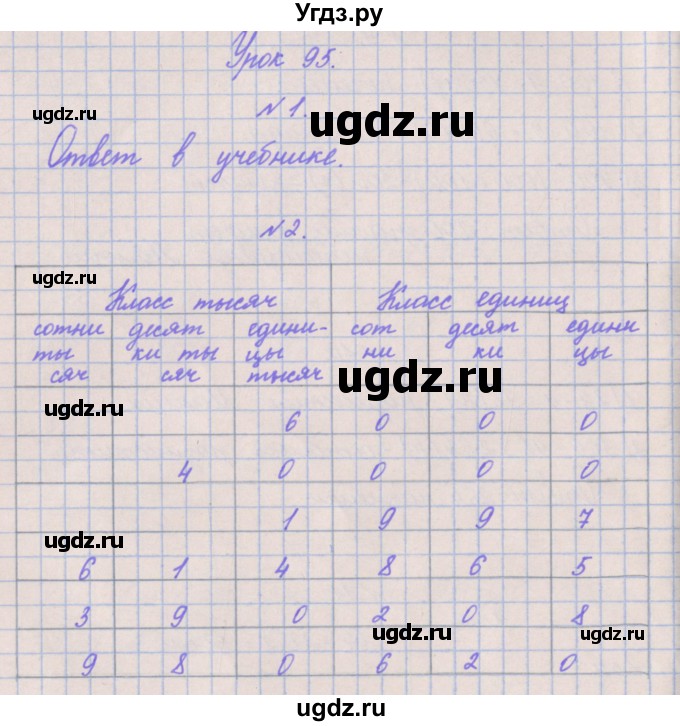 Угдз.ру
Урок 95.
ugdz.ru
№1.
ugdz.ru
Ответ в учебнике.
№2.
ugdz.ru
Класс тысяч Класс единиц
сотни десят едини- сот десят едини
ты ки ты цы ни ки цы
сяч сяч тысяч
ugdz.ru
ugdz.ru
6 0 0 0
4 0 0 0 0
1 9 9 7
ugdz.ru
6 1 4 8 6 5
3 9 0 2 0 8
ugdz.ru
ugdz.ru
9 8 0 6 2 0
ugdz.ru